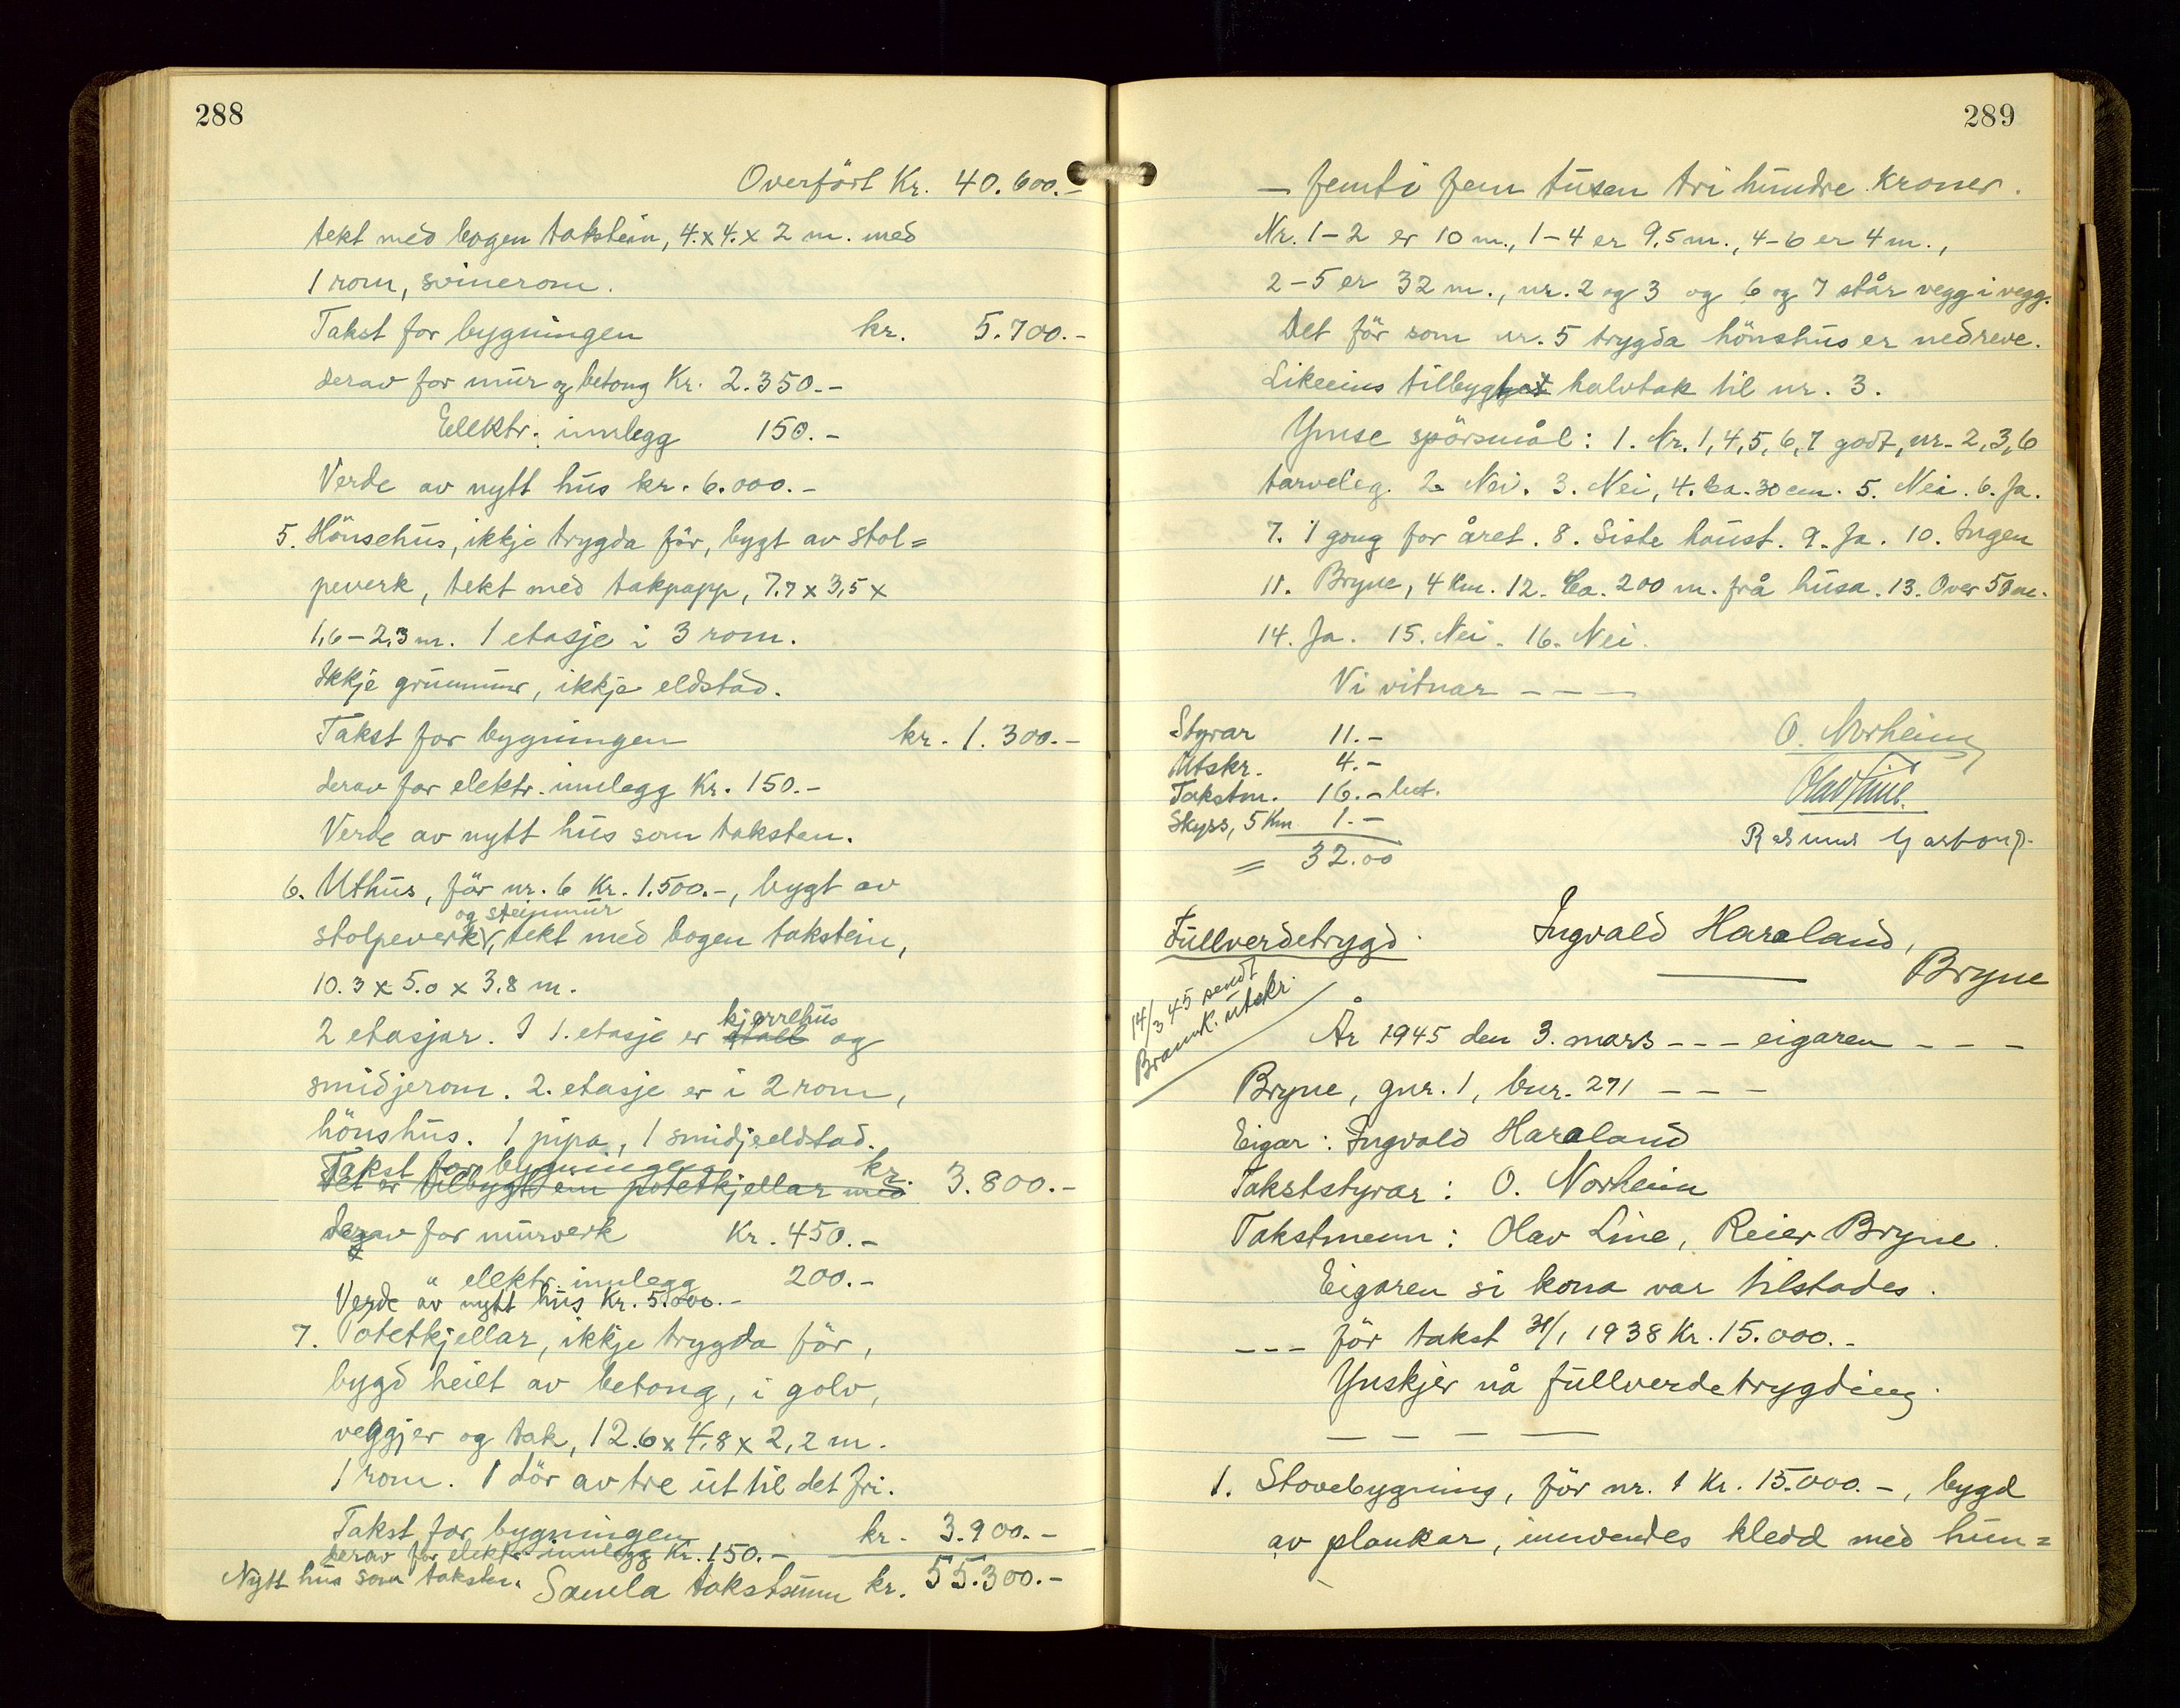 288
Overfört Kr. 40.600.-
tekt med bogen takstein, 4. x 4. x 2 m. med
1 rom, svinerom.
Takst for bygningen kr. 5.700.-
derav for mur og betong Kr. 2.350.-
Elektr. innlegg 150.-
Verde av nytt hus kr. 6.000.-
5. Hönsehus, ikkje trygda för, bygt av stol=
peverk, tekt med takpapp, 7.7 x 3,5 x
1,6-2,3 m. 1 etasje i 3 rom.
Ikkje grunnmur, ikkje eldstad.
Takst for bygningen kr. 1.300.-
derav for elektr. innlegg Kr. 150.-
Verde av nytt hus som taksten.
6. Uthus, för nr. 6 Kr. 1.500.-, bygt av
og steinmur
stolpeverk, tekt med bogen takstein,
10.3 x 5.0 x 3.8 m.
kjerrehus
2 etasjar. I 1. etasje er stall og
smidjerom. 2. etasje er i 2 rom,
hönshus. 1 pipa, 1 smidjeeldstad.
Takst for bygningen kr. 3.800.-
Det er tilbygt ein potetkjellar med
derav for murverk Kr. 450.-
" elektr. innlegg 200.-
Verde av nytt hus Kr. 5.000.-
7. Potetkjellar, ikkje trygda för,
bygd heilt av betong, i golv,
veggjer og tak, 12.6 x 4,8 x 2,2 m.
1 rom. 1 dör av tre ut til det fri.
Takst for bygningen kr. 3.900.-
derav for elektr. innlegg Kr. 150.-
Nytt hus som taksten. Samla takstsum kr. 55.300.-
289
- femti fem tusen tri hundre kroner.
Nr. 1-2 er 10 m., 1-4 er 9,5 m., 4-6 er 4 m.,
2-5 er 32 m., nr. 2 og 3 og 6 og 7 står vegg i vegg.
Det för som nr. 5 trygda hönshus er nedreve.
Likeeins tilbygt halvtak til nr. 3.
Ymse spörsmål: 1. Nr. 1,4,5,6,7 godt, nr. 2,3,6
tarveleg. 2. Nei. 3. Nei, 4. Ca. 30 cm. 5. Nei. 6. Ja.
7. 1 gong for året. 8. Siste haust. 9. Ja. 10. Ingen
11. Bryne, 4 Km. 12. Ca. 200 m. frå husa. 13. Over 50 m.
14. Ja. 15. Nei. 16. Nei.
Vi vitnar - - -
Styrar 11.-
Utskr. 4.-
Takstm. 16.-
Skyss, 5 Km 1.-
= 32.00
O. Norheim
Olav Line.
Fullverdetrygd.
Ingvald Haraland,
Bryne
14/3 45 sendt
Brannk. utskr.
År 1945 den 3. mars - - - eigaren - - -
Bryne, gnr. 1, bnr. 271 - - -
Eigar: Ingvald Haraland
Takststyrar: O. Norheim
Takstmenn: Olav Line, Reier Bryne.
Eigaren si kona var tilstades.
- - - för takst 31/1 1938 Kr. 15.000.-
Ynskjer nå fullverdetrygding.
- - - -
1. Stovebygning, för nr. 1 Kr. 15.000.-, bygd
av plankar, innvendes kledd med hun=